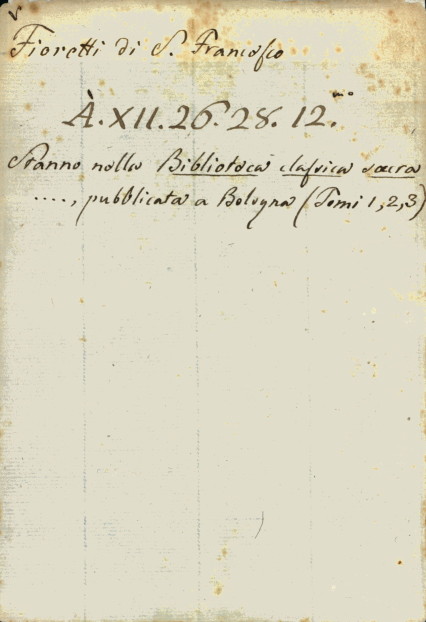 Fioretti di S. Francesco
À. XII. 26. 28. 12.mo
Stanno nella Biblioteca classica sacra
...., pubblicata a Bologna (Tomi 1, 2, 3)